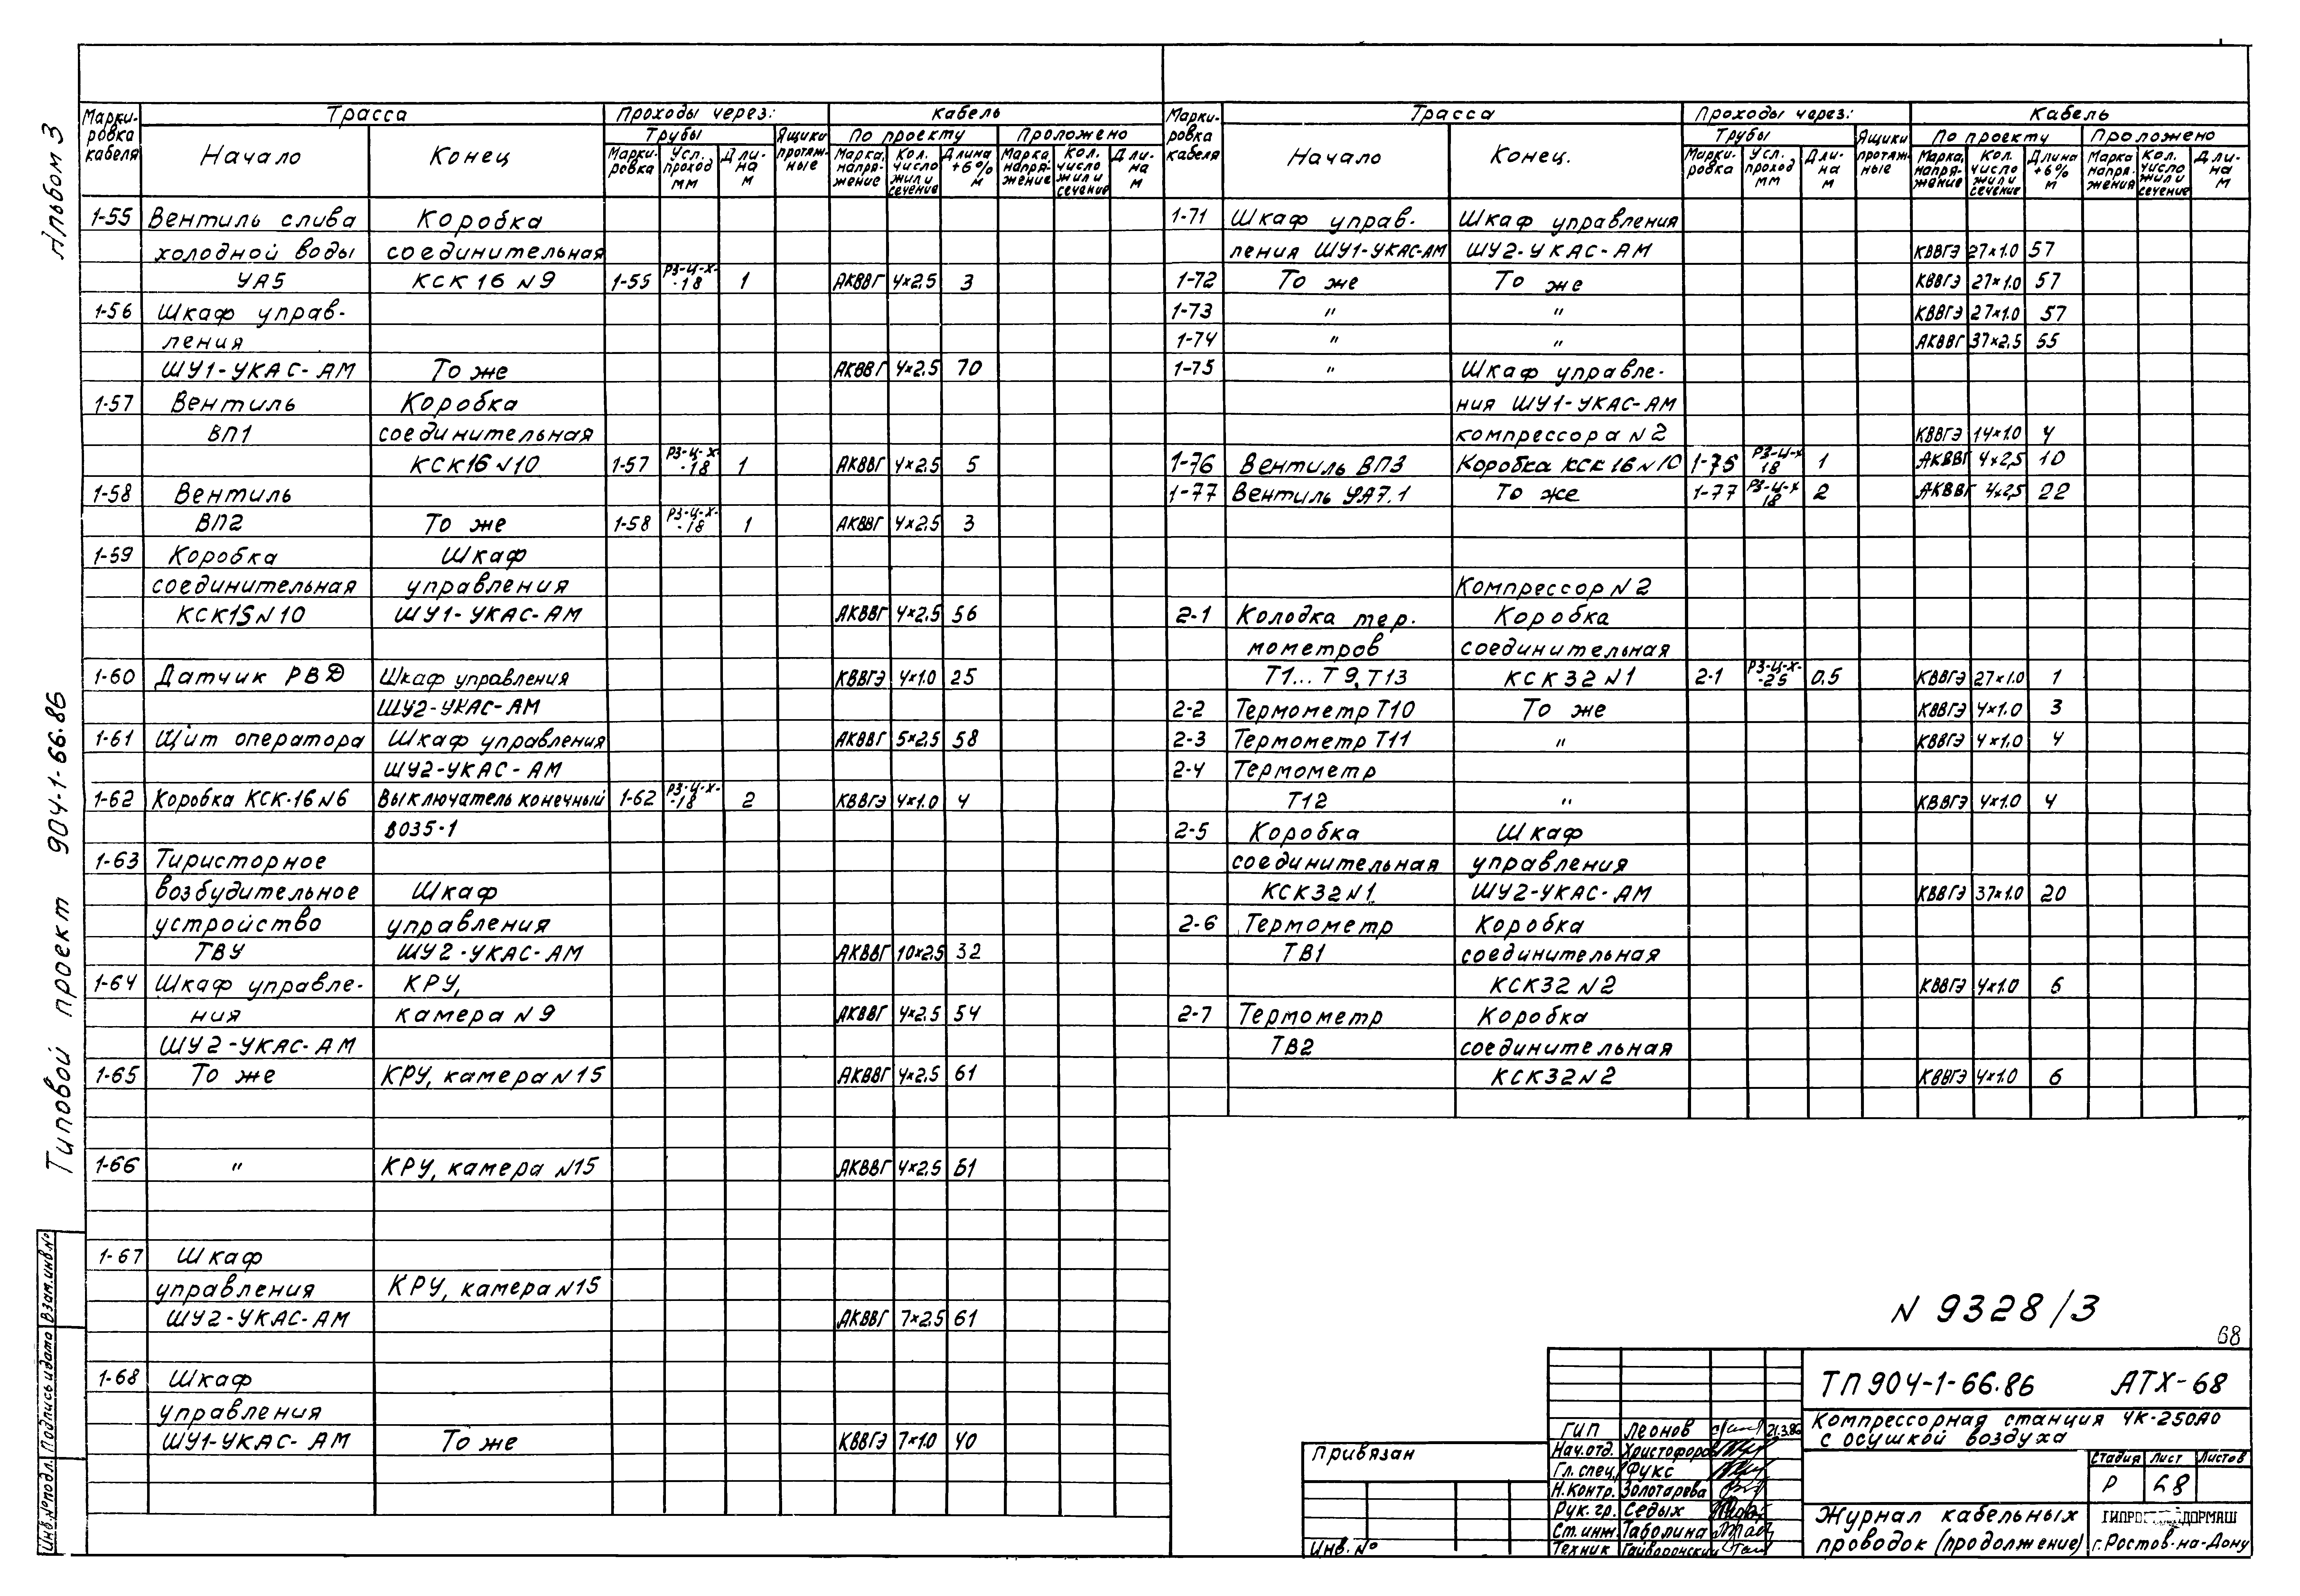 Альбом 3
Типовой проект 904-1-66.86
Марки-ровка кабеля | Трасса | Проходы через: | Кабель
Начало | Конец | Трубы | Ящики протяж-ные | По проекту | Проложено
Марки-ровка | Усл. проход мм | Дли-на м | Марка, напря-жение | Кол. число жил и сечение | Длина +6% м | Марка напря-жение | Кол. число жил и сечение | Дли-на м
1-55 Вентиль слива Коробка
холодной воды соединительная
УА5 КСК 16 N 9 1-55 РЗ-Ц-Х-18 1 АКВВГ 4×2,5 3
1-56 Шкаф управ-
ления
ШУ1-УКАС-АМ То же АКВВГ 4×2,5 70
1-57 Вентиль Коробка
ВП1 соединительная
КСК16 N10 1-57 РЗ-Ц-Х-18 1 АКВВГ 4×2,5 5
1-58 Вентиль
ВП2 То же 1-58 РЗ-Ц-Х-18 1 АКВВГ 4×2,5 3
1-59 Коробка Шкаф
соединительная управления
КСК15 N10 ШУ1-УКАС-АМ АКВВГ 4×2,5 56
1-60 Датчик РВД Шкаф управления КВВГЭ 4×1.0 25
ШУ2-УКАС-АМ
1-61 Щит оператора Шкаф управления АКВВГ 5×2,5 58
ШУ2-УКАС-АМ
1-62 Коробка КСК-16 N6 Выключатель конечный 1-62 РЗ-Ц-Х-18 2 КВВГЭ 4×1.0 4
ВО35-1
1-63 Тиристорное
возбудительное Шкаф
устройство управления
ТВУ ШУ2-УКАС-АМ АКВВГ 10×2,5 32
1-64 Шкаф управле- КРУ,
ния камера N 9 АКВВГ 4×2,5 54
ШУ2-УКАС-АМ
1-65 То же КРУ, камера N15 АКВВГ 4×2,5 61
1-66 " КРУ, камера N15 АКВВГ 4×2,5 61
1-67 Шкаф
управления КРУ, камера N15
ШУ2-УКАС-АМ АКВВГ 7×2,5 61
1-68 Шкаф
управления
ШУ1-УКАС-АМ То же КВВГЭ 7×1.0 40
Марки-ровка кабеля | Трасса | Проходы через: | Кабель
Начало | Конец. | Трубы | Ящики протяж-ные | По проекту | Проложено
Марки-ровка | Усл. проход мм | Дли-на м | Марка, напря-жение | Кол. число жил и сечение | Длина +6% м | Марка напря-жения | Кол. число жил и сечение | Дли-на м
1-71 Шкаф управ- Шкаф управления
ления ШУ1-УКАС-АМ ШУ2-УКАС-АМ КВВГЭ 27×1.0 57
1-72 То же То же КВВГЭ 27×1.0 57
1-73 " " КВВГЭ 27×1.0 57
1-74 " " АКВВГ 37×2,5 55
1-75 " Шкаф управле-
ния ШУ1-УКАС-АМ
компрессора N 2 КВВГЭ 14×1.0 4
1-76 Вентиль ВП3 Коробка КСК 16 N 10 1-75 РЗ-Ц-Х 18 1 АКВВГ 4×2,5 10
1-77 Вентиль УА7.1 То же 1-77 РЗ-Ц-Х 18 2 АКВВГ 4×2,5 22
Компрессор N 2
2-1 Колодка тер. Коробка
мометров соединительная
Т1... Т9, Т13 КСК 32 N1 2-1 РЗ-Ц-Х-25 0.5 КВВГЭ 27×1.0 1
2-2 Термометр Т10 То же КВВГЭ 4×1.0 3
2-3 Термометр Т11 " КВВГЭ 4×1.0 4
2-4 Термометр
Т12 " КВВГЭ 4×1.0 4
2-5 Коробка Шкаф
соединительная управления
КСК32 N1 ШУ2-УКАС-АМ КВВГЭ 37×1.0 20
2-6 Термометр Коробка
ТВ1 соединительная
КСК32 N2 КВВГЭ 4×1.0 6
2-7 Термометр Коробка
ТВ2 соединительная
КСК32 N2 КВВГЭ 4×1.0 6
N 9328/3
68
ТП 904-1-66.86 АТХ-68
Компрессорная станция 4К-250А0
с осушкой воздуха
Стадия Лист Листов
Р 68
Журнал кабельных
проводок (продолжение)
г. Ростов-на-Дону
ГИП Леонов 21.3.86
Нач.отд. Христофоров
Гл. спец. Фукс
Н.Контр. Золотарева
Рук. гр. Седых
Ст. инж. Таболина
Техник Гайворонский
Привязан
Инв. №
Взам.инв.№
Подпись и дата
Инв.№подл.